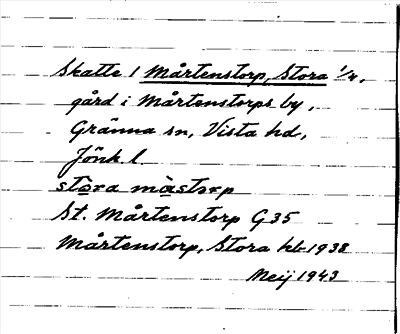 Skatte 1 Mårtenstorp, Stora 1/4,
gård i Mårtenstorps by,
Gränna sn, Vista hd,
Jönk l.
stòra màstorp
St. Mårtenstorp G35
Mårtenstorp, Stora kb 1938
Meij 1943